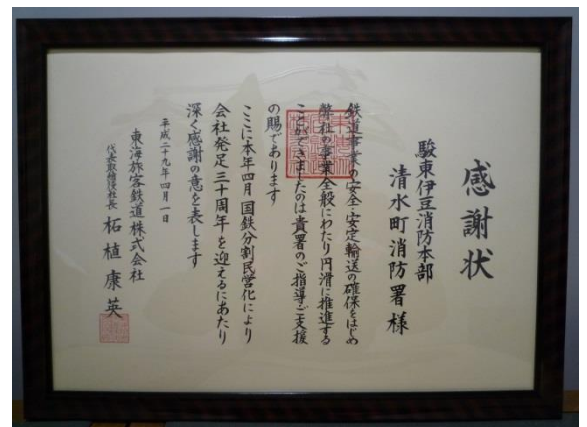 感謝状
駿東伊豆消防本部
清水町消防署様
鉄道事業の安全・安定輸送の確保をはじめ
弊社の事業全般にわたり円滑に推進する
ことができましたのは貴署のご指導ご支援
の賜であります
ここに本年四月国鉄分割民営化により
会社発足三十周年を迎えるにあたり
深く感謝の意を表します
平成二十九年四月一日
東海旅客鉄道株式会社
代表取締役社長 柘植康英